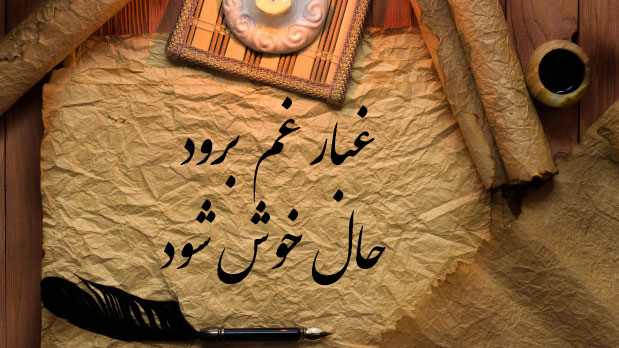 غبار غم برود
حال خوش شود